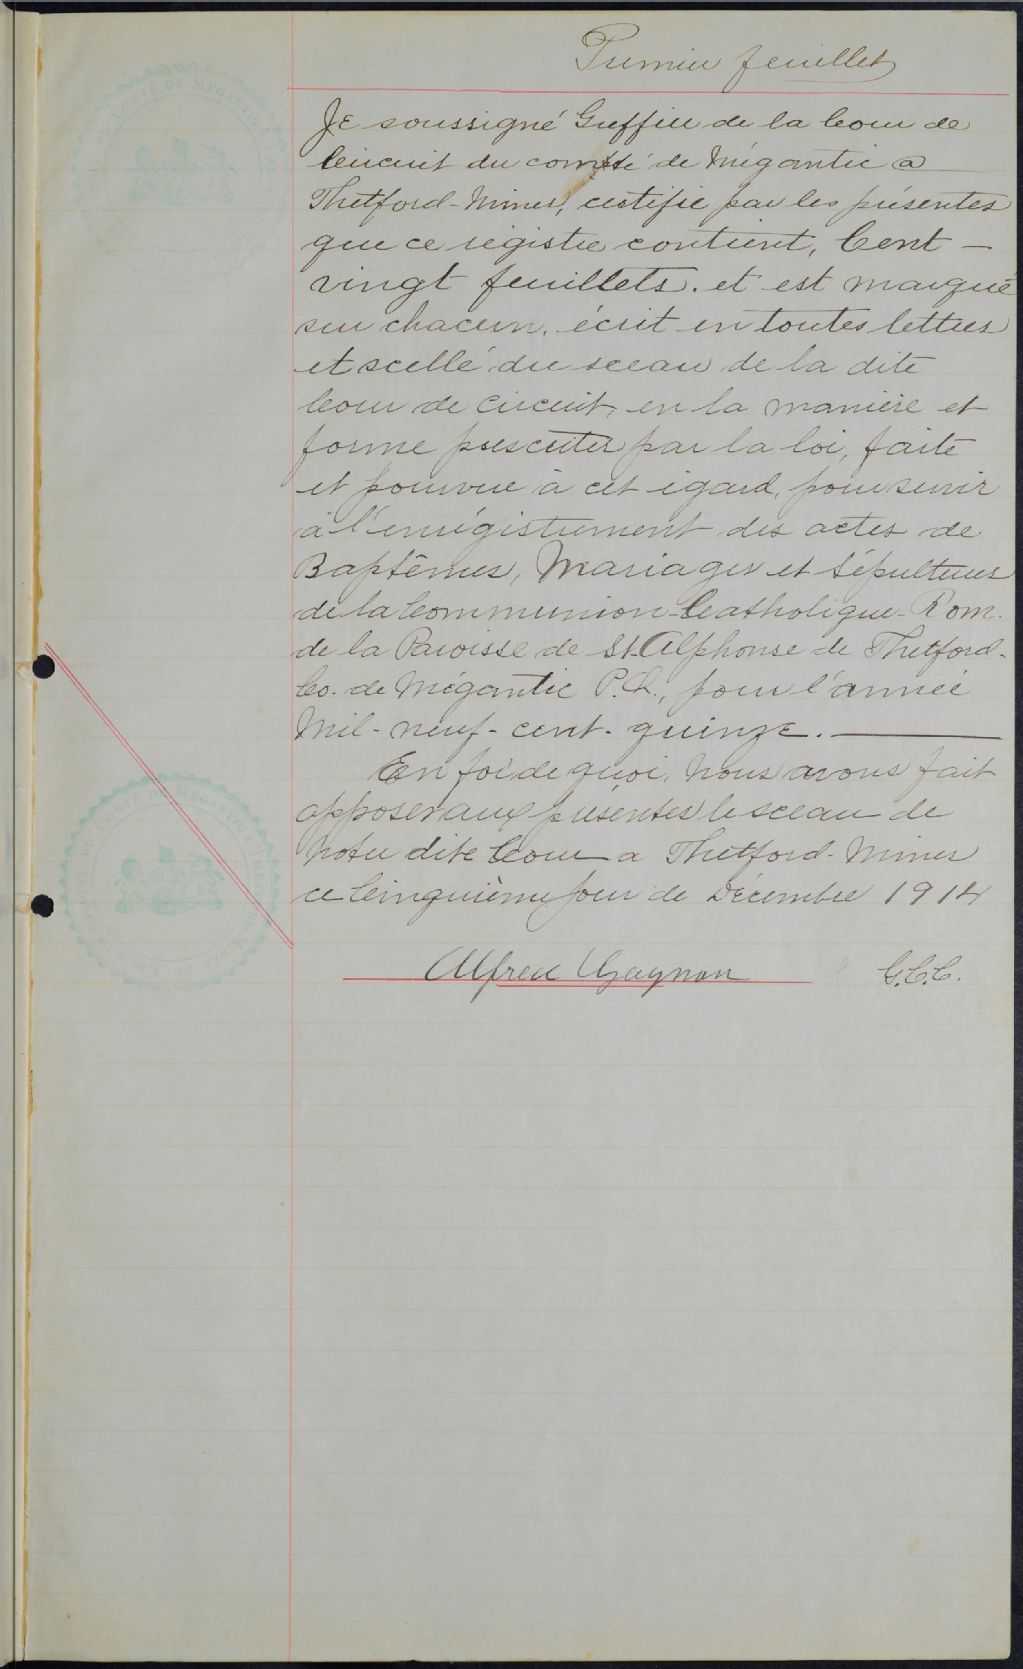 Premier feuillet
Je soussigné Greffier de la Cour de
Circuit du comté de Mégantic a
Thetford-Mines, certifie par les présentes
que ce régistre contient, Cent -
vingt feuillets. et est marqué
sur chacun, écrit en toutes lettres
et scellé du sceau de la dite
Cour de Circuit, en la manière et
forme prescrites par la loi, faite
et pourvue à cet égard, pour servir
à l'enrégistrement des actes de
Baptêmes, Mariages et Sépultures
de la Communion-Catholique-Rom.
de la Paroisse de St-Alphonse de Thetford-
Co. de Mégantic P.Q., pour l'année
Mil-neuf-cent-quinze.
En foi de quoi, Nous avons fait
apposer aux présentes le sceau de
Notre dite Cour a Thetford-Mines
ce Cinquième jour de Décembre 1914
Alfred Gagnon G.C.C.